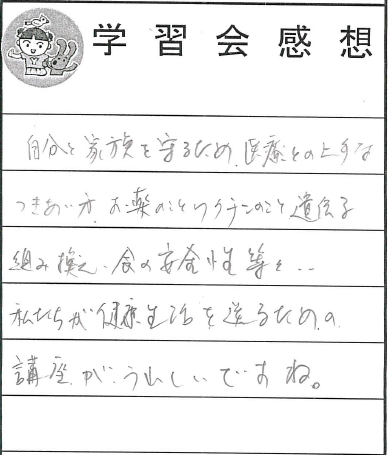 学習会感想
自分と家族を守るため、医療との上手な
つきあい方、お薬のことワクチンのこと遺伝子
組み換え、食の安全性等々‥
私たちが健康生活を送るための
講座が、うれしいですね。